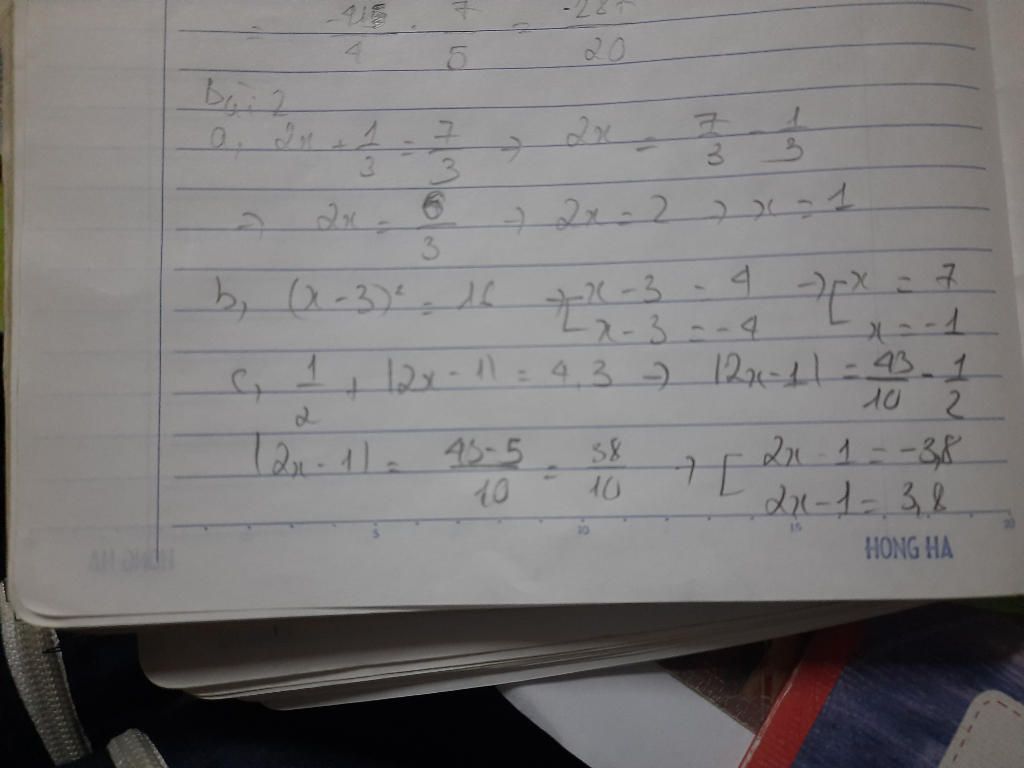 = /4 . 7/5 = /20
Bài 2
a, 2x + 1/3 = 7/3 → 2x = 7/3 - 1/3
→ 2x = 6/3 → 2x = 2 → x = 1
b, (x - 3)² = 16 → [ x - 3 = 4 → [ x = 7
x - 3 = -4 x = -1
c, 1/2 + |2x - 1| = 4,3 → |2x - 1| = 43/10 - 1/2
|2x - 1| = 43-5/10 = 38/10 → [ 2x - 1 = -3,8
2x - 1 = 3,8
5 10 15 20
HONG HA